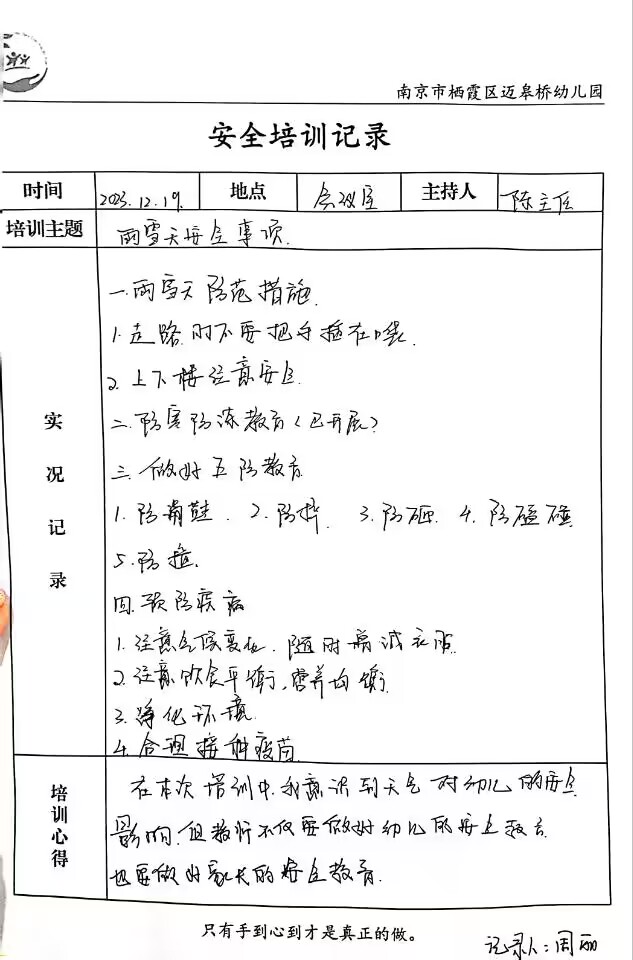 南京市栖霞区迈皋桥幼儿园
安全培训记录
时间 2023.12.19. 地点 会议室 主持人 陈主任
培训主题 雨雪天安全事项.
实况记录
一.雨雪天防范措施.
1.走路时不要把手插在口袋.
2.上下楼注意安全.
二.防寒防冻教育(已开展)
三.做好五防教育
1.防滑鞋. 2.防摔. 3.防砸. 4.防磕碰
5.防撞.
四.预防疾病
1.注意气候变化.随时增减衣服.
2.注意饮食平衡,营养均衡.
3.净化环境.
4.合理接种疫苗.
培训心得
在本次培训中.我意识到天气对幼儿的安全
影响.但教师不仅要做好幼儿的安全教育
也要做好家长的安全教育.
只有手到心到才是真正的做。
记录人:周丽